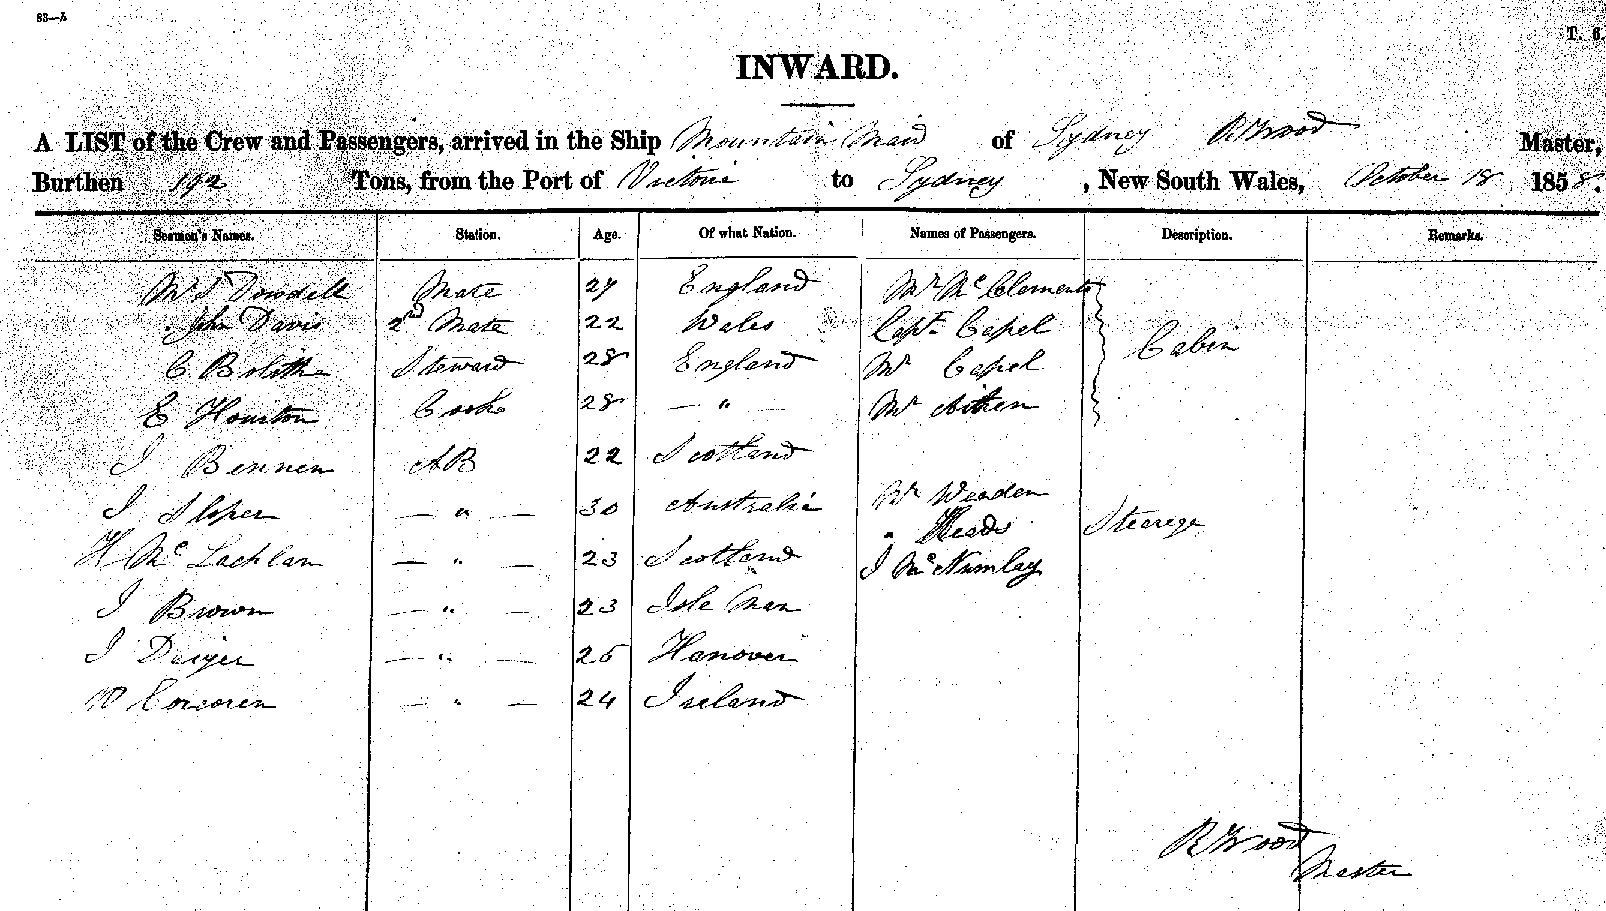 83—A
T. 6.
INWARD.
A LIST of the Crew and Passengers, arrived in the Ship Mountain Maid of Sydney R Wood Master,
Burthen 192 Tons, from the Port of Victoria to Sydney, New South Wales, October 18 1858.
Seamen's Names. Station. Age. Of what Nation. Names of Passengers. Description. Remarks.
Dowdell Mate 27 England Mr Mc Clements
John Davis 2nd Mate 22 Wales Capt. Capel Cabin
C. Steward 28 England Mr Capel
E Houston Cook 28 — " — Mr Aitken
J Bennen AB 22 Scotland
J Sloper — " — 30 Australia Mr
" Steerege
H Mc Lachlan — " — 23 Scotland J Mc
J Brown — " — 23 Isle Man
J — " — 25 Hanover
Corcoren — " — 24 Ireland
R Wood
Master